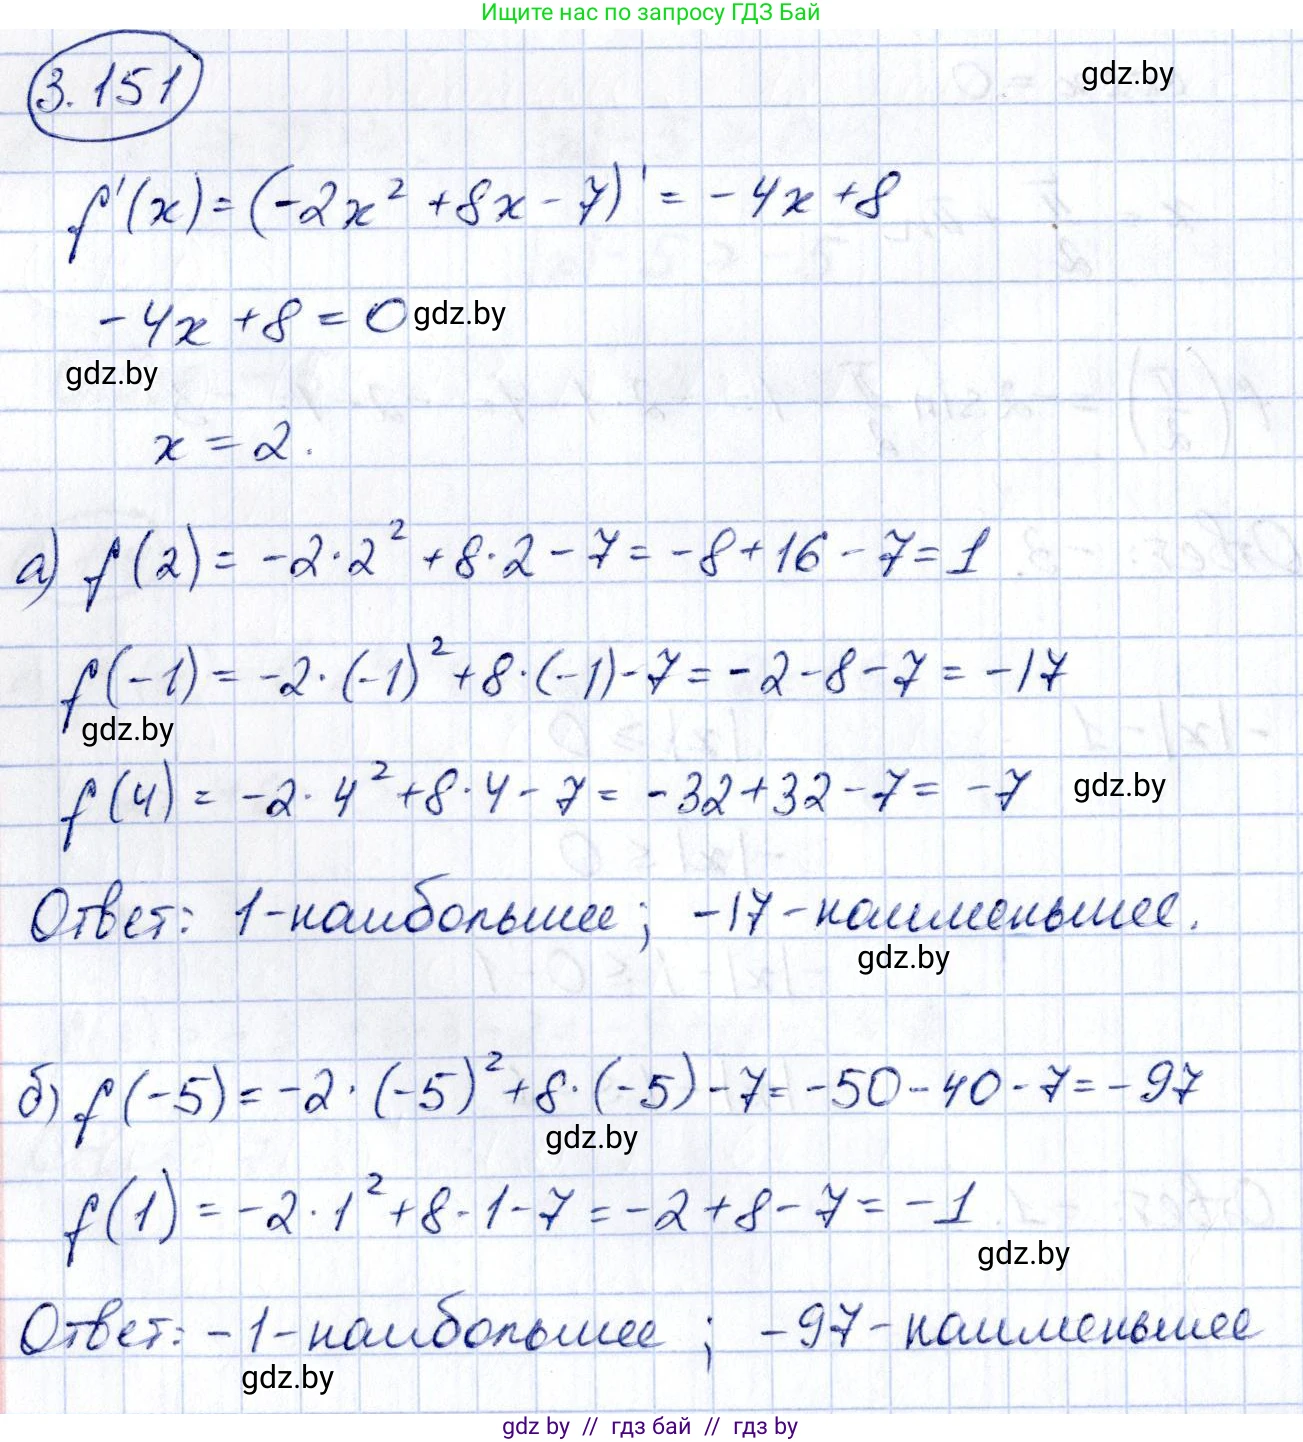 Ищите нас по запросу ГДЗ Бай
3.151
gdz.by
f'(x) = (-2x² + 8x - 7)' = -4x + 8
-4x + 8 = 0 gdz.by
gdz.by
x = 2.
а) f(2) = -2·2² + 8·2 - 7 = -8 + 16 - 7 = 1
f(-1) = -2·(-1)² + 8·(-1) - 7 = -2 - 8 - 7 = -17
gdz.by
f(4) = -2·4² + 8·4 - 7 = -32 + 32 - 7 = -7 gdz.by
Ответ: 1 - наибольшее; -17 - наименьшее.
gdz.by
б) f(-5) = -2·(-5)² + 8·(-5) - 7 = -50 - 40 - 7 = -97
gdz.by
f(1) = -2·1² + 8·1 - 7 = -2 + 8 - 7 = -1
gdz.by
Ответ: -1 - наибольшее; -97 - наименьшее
gdz.by
gdz by // гдз бай // гдз by